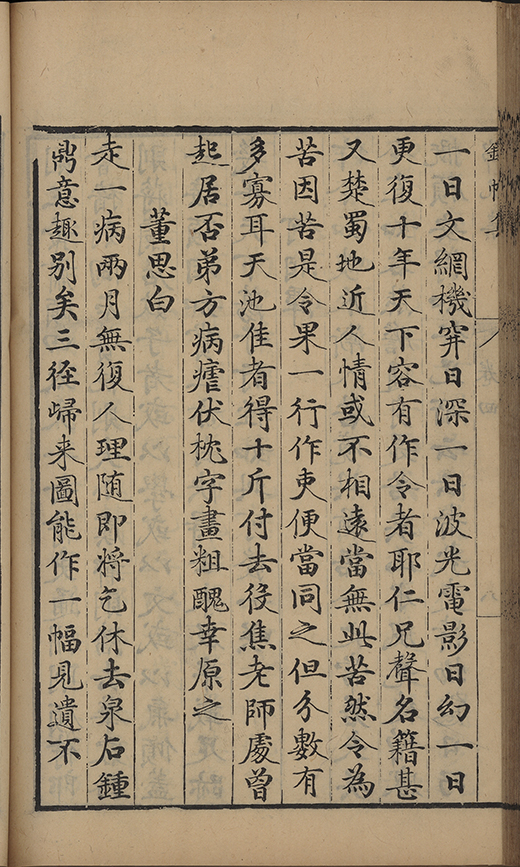 一日文網機穽日深一日波光電影日幻一日
更復十年天下容有作令者耶仁兄聲名籍甚
又楚蜀地近人情或不相遠當無此苦然令為
苦因苦是令果一行作吏便當同之但分數有
多寡耳天池佳者得十斤付去役焦老師處曾
起居否弟方病瘧伏枕字畫粗醜幸原之
董思白
走一病兩月無復人理随即將乞休去泉石鍾
鼎意趣别矣三徑歸来圖能作一幅見遺不